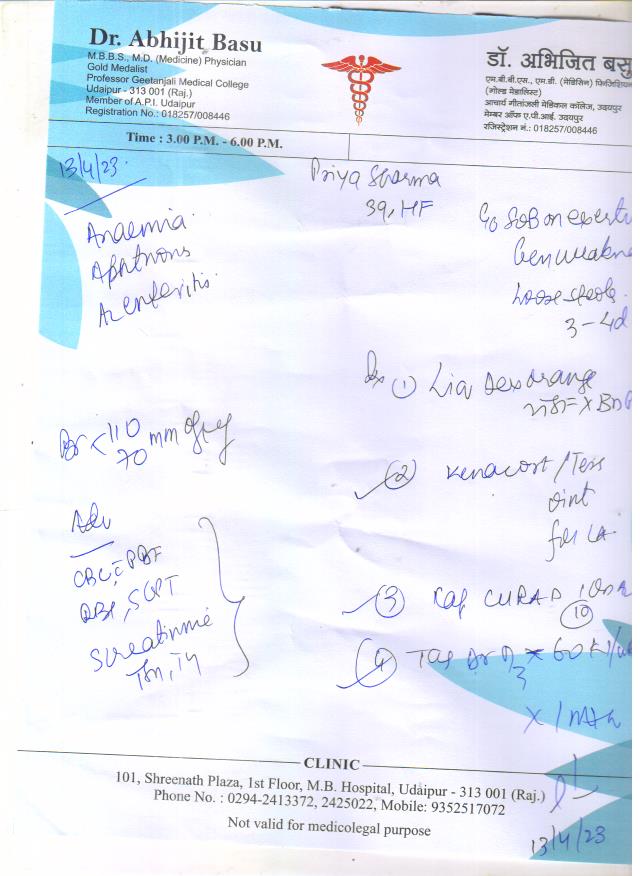 Dr. Abhijit Basu
M.B.B.S., M.D. (Medicine) Physician
Gold Medalist
Professor Geetanjali Medical College
Udaipur - 313 001 (Raj.)
Member of A.P.I. Udaipur
Registration No.: 018257/008446
डॉ. अभिजित बसु
एम.बी.बी.एस., एम.डी. (मेडिसिन) फिजिशियन
(गोल्ड मेडालिस्ट)
आचार्य गीतांजली मेडिकल कॉलेज, उदयपुर
मेम्बर ऑफ ए.पी.आई. उदयपुर
रजिस्ट्रेशन नं.: 018257/008446
Time : 3.00 P.M. - 6.00 P.M.
13/4/23
Priya Sharma
39, HF
Anaemia
Aphthous
Ac enteritis
C/o SOB on exerti
Gen weakne
Loose stools
3 - 4d
Rx (1) Liq Dexorange
BP < 110/70 mm of Hg
(2) Kenacort / Tess
oint
for LA
Adv
CBC, PBF
SGPT
S creatinine
(3) Cap CURAD
(10)
(4) D3 x 60K/w
x 1 mth
CLINIC
101, Shreenath Plaza, 1st Floor, M.B. Hospital, Udaipur - 313 001 (Raj.)
Phone No. : 0294-2413372, 2425022, Mobile: 9352517072
Not valid for medicolegal purpose
13/4/23